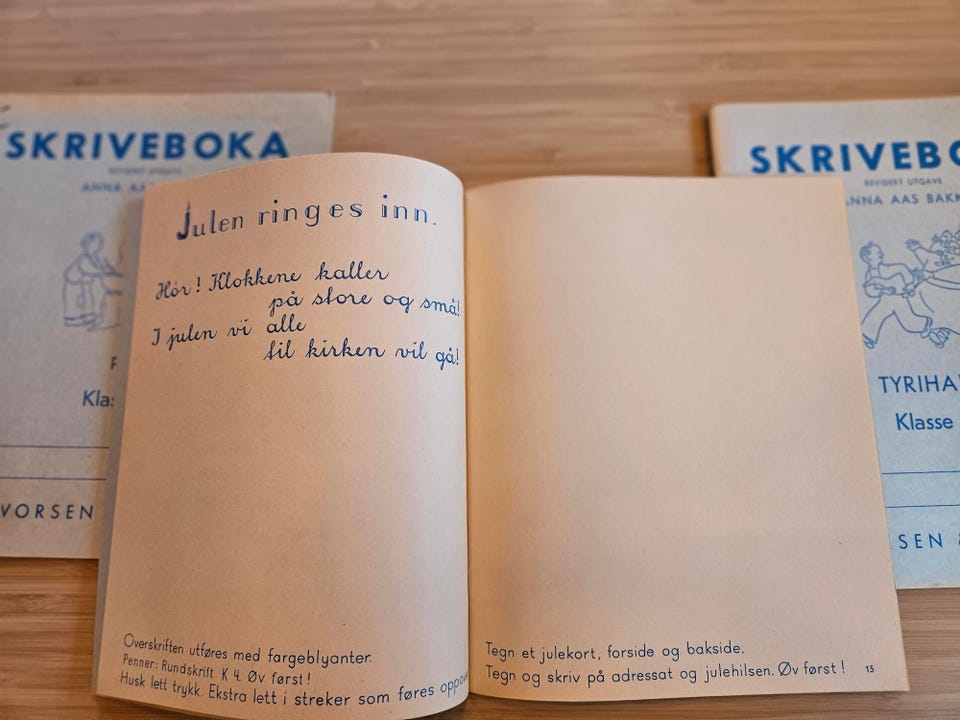 SKRIVEBOKA
REVIDERT UTGAVE
ANNA
Klas
VORSEN
Julen ringes inn.
Hör! Klokkene kaller
på store og små!
I julen vi alle
til kirken vil gå!
Overskriften utføres med fargeblyanter.
Penner: Rundskrift K 4. Øv først!
Husk lett trykk. Ekstra lett i streker som føres oppov
Tegn et julekort, forside og bakside.
Tegn og skriv på adressat og julehilsen. Øv først!
15
SKRIVEBO
REVIDERT UTGAVE
ANNA AAS BAKK
TYRIHA
Klasse
SEN